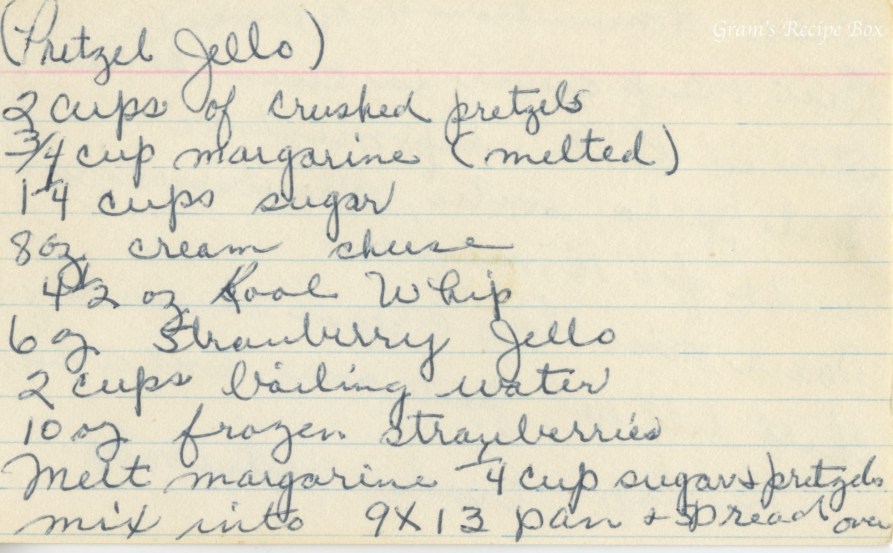 Gram's Recipe Box
(Pretzel Jello)
2 cups of crushed pretzels
3/4 cup margarine (melted)
1 1/4 cups sugar
8 oz cream cheese
4 1/2 oz Kool Whip
6 oz Strawberry Jello
2 cups boiling water
10 oz frozen strawberries
Melt margarine 1/4 cup sugar & pretzels
mix into 9X13 pan & spread over